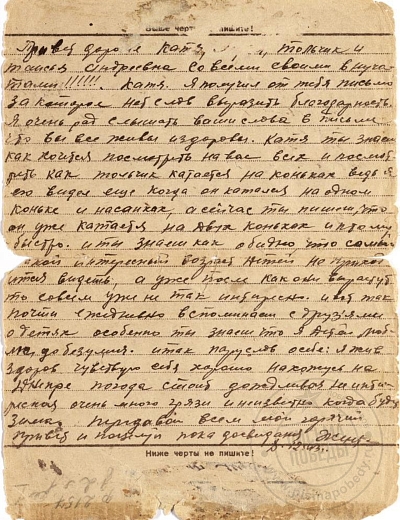 Выше черты не пишите!
Привет дорогая Катя, Тольчик и
Таисья Андреевна со всеми своими внуча-
тами!!!!!! Катя. Я получил от тебя письмо
за которое нет слов выразить благодарность
Я очень рад слышать ваши слова в письме
что вы все живы и здоровы. Катя ты знаеш
как хочится посмотреть на вас всех и посмот-
реть как Тольчик катается на коньках ведь я
его видел еще когда он катался на одном
коньке и на санках, а сейчас ты пишиш, что
он уже катается на двух коньках и притому
быстро. и ты знаеш как обидно что самый
такой интересный возраст детей не прихо-
дится видеть, а уже после как они вырастут
то совсем уже не так интиресно. и вот так
почти ежедневно вспоминаем с друзями
о детях особенно ты знаеш что я детей люб-
лю до безумия. итак пару слов о себе: я жив
здоров чувствую себя хорошо нахожусь на
Днепре погода стоит дождливая не интир-
есная очень много грязи и неизвестно когда будет
зима. Передавай всем мой горячий
привет и поцелуи пока досвиданя
Ниже черты не пишите!